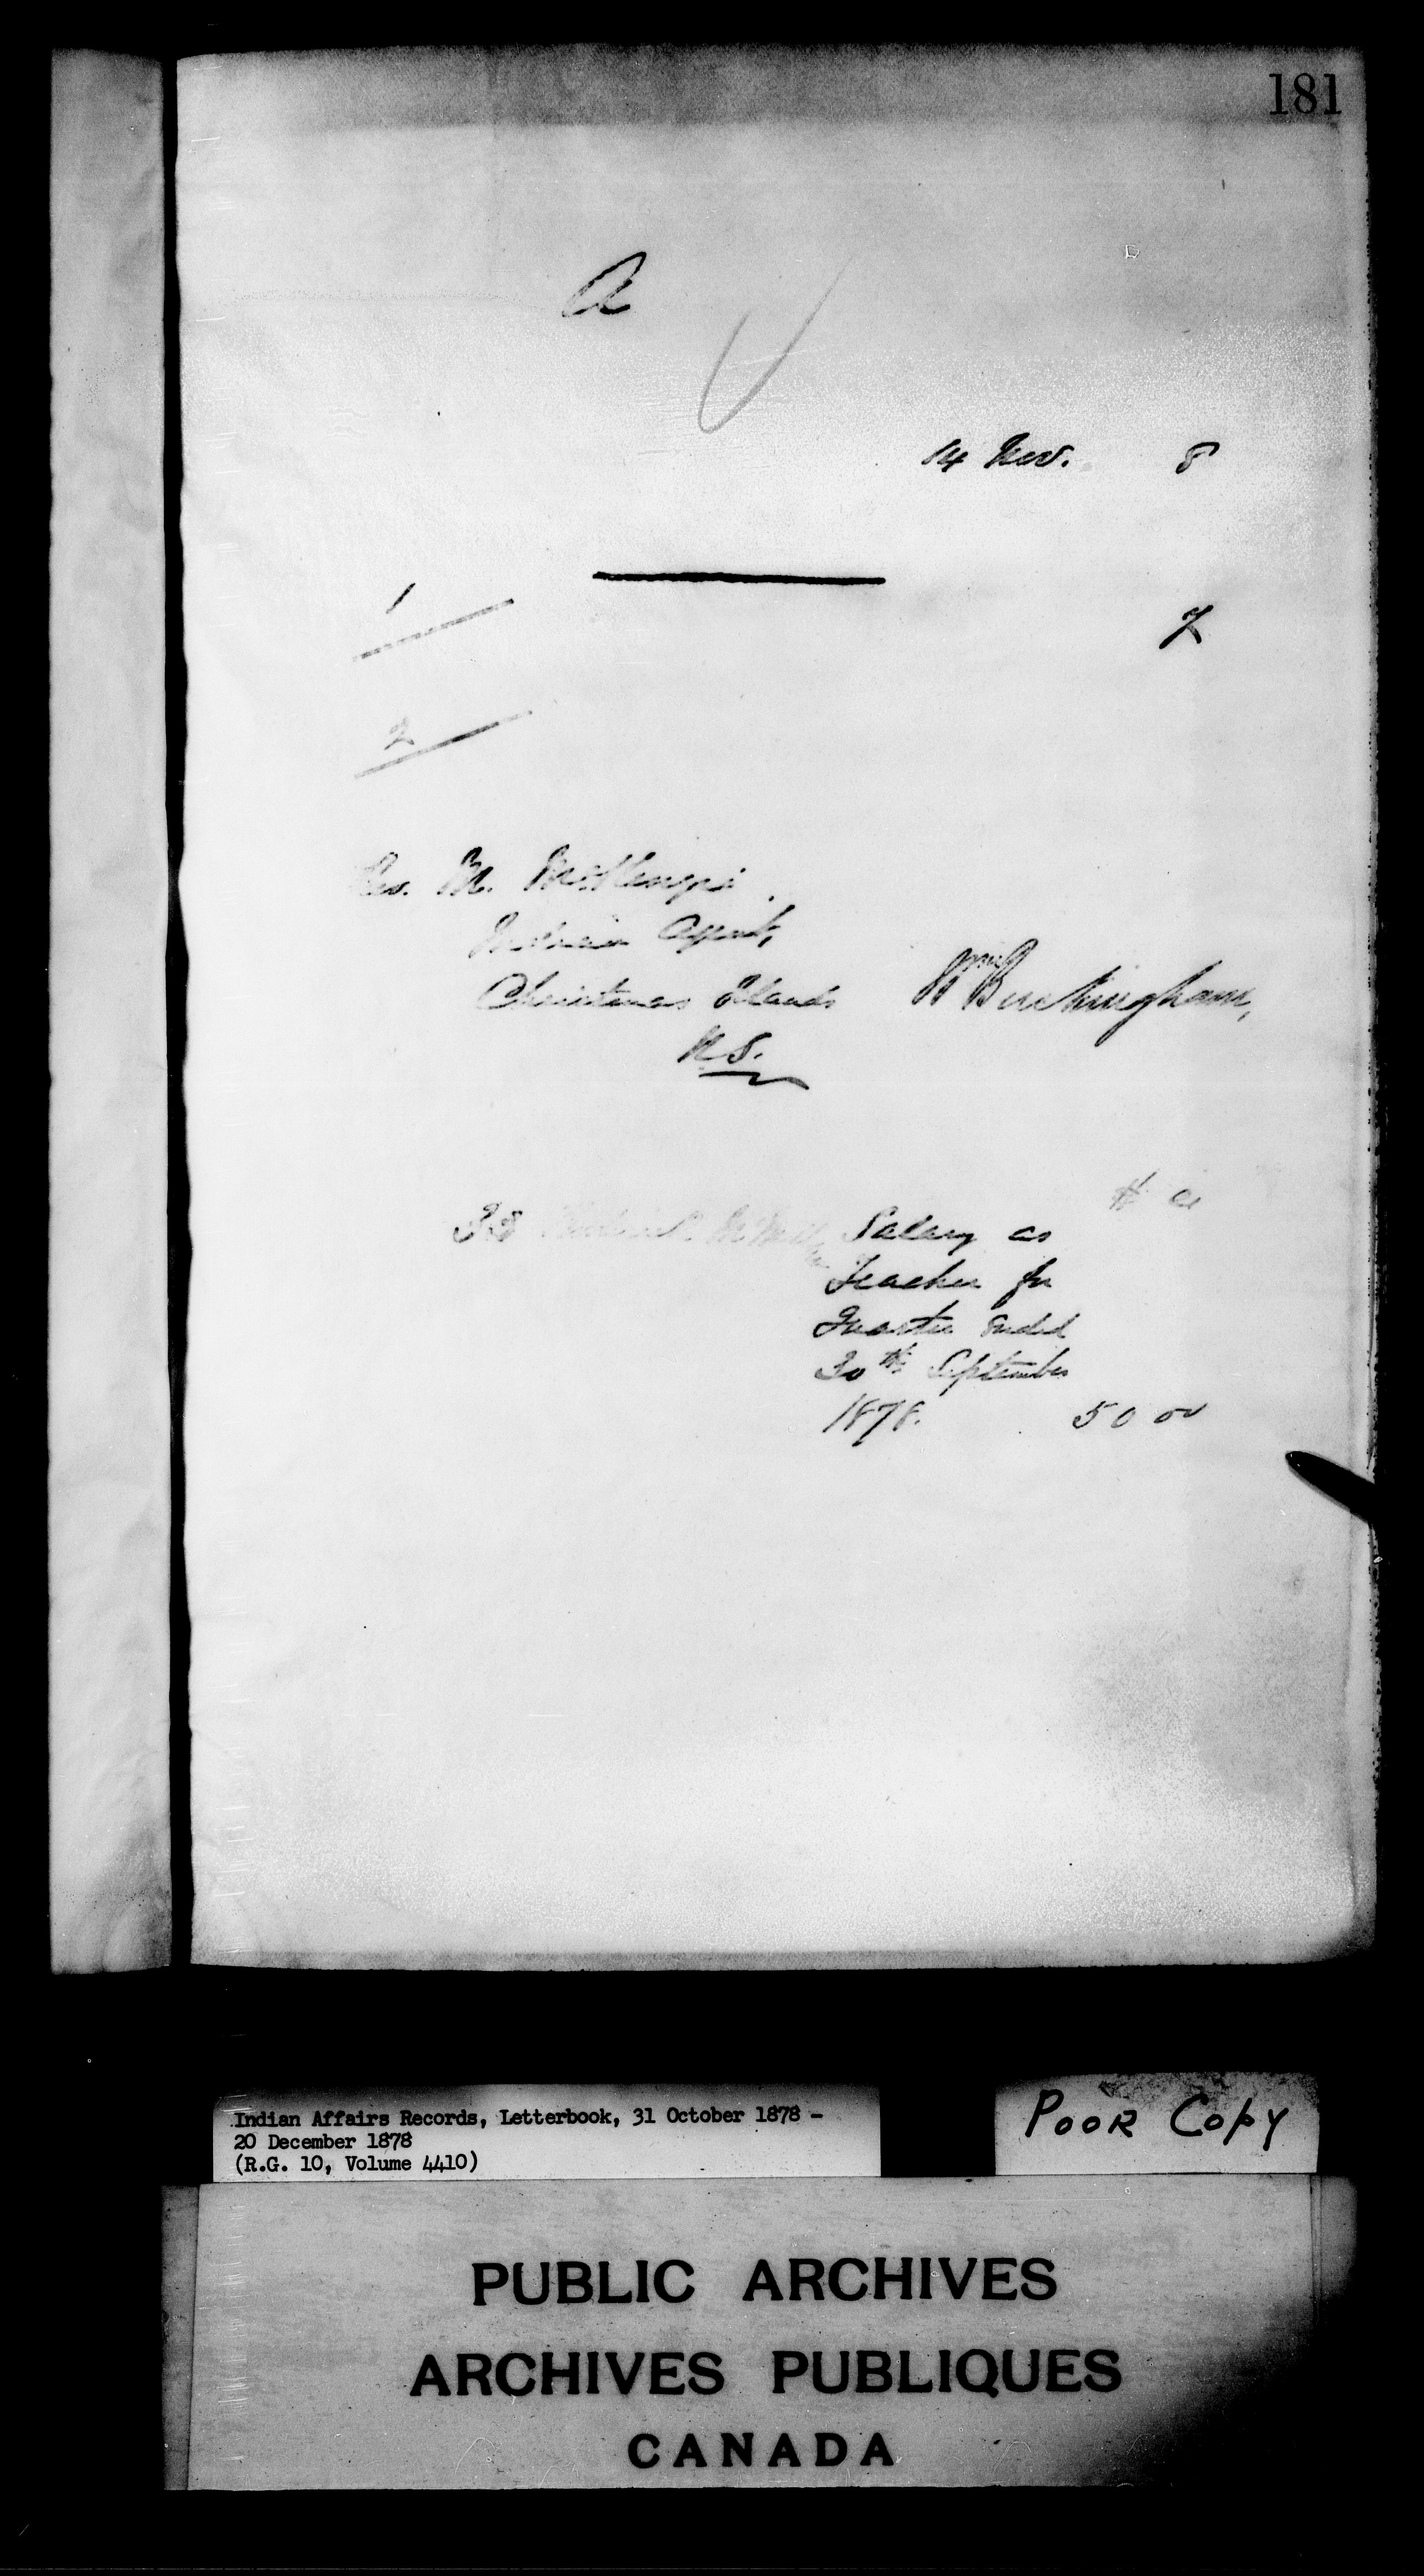 181
A
14 Nov. 8
1
2
Rev. M. McKenzie
Indian Agent,
Christmas Island
N.S.
Wm Buckingham,
$ cts
Salary as
Teacher for
Quarter ended
30th September
1878. 50 00
Indian Affairs Records, Letterbook, 31 October 1878 -
20 December 1878
(R.G. 10, Volume 4410)
Poor Copy
PUBLIC ARCHIVES
ARCHIVES PUBLIQUES
CANADA